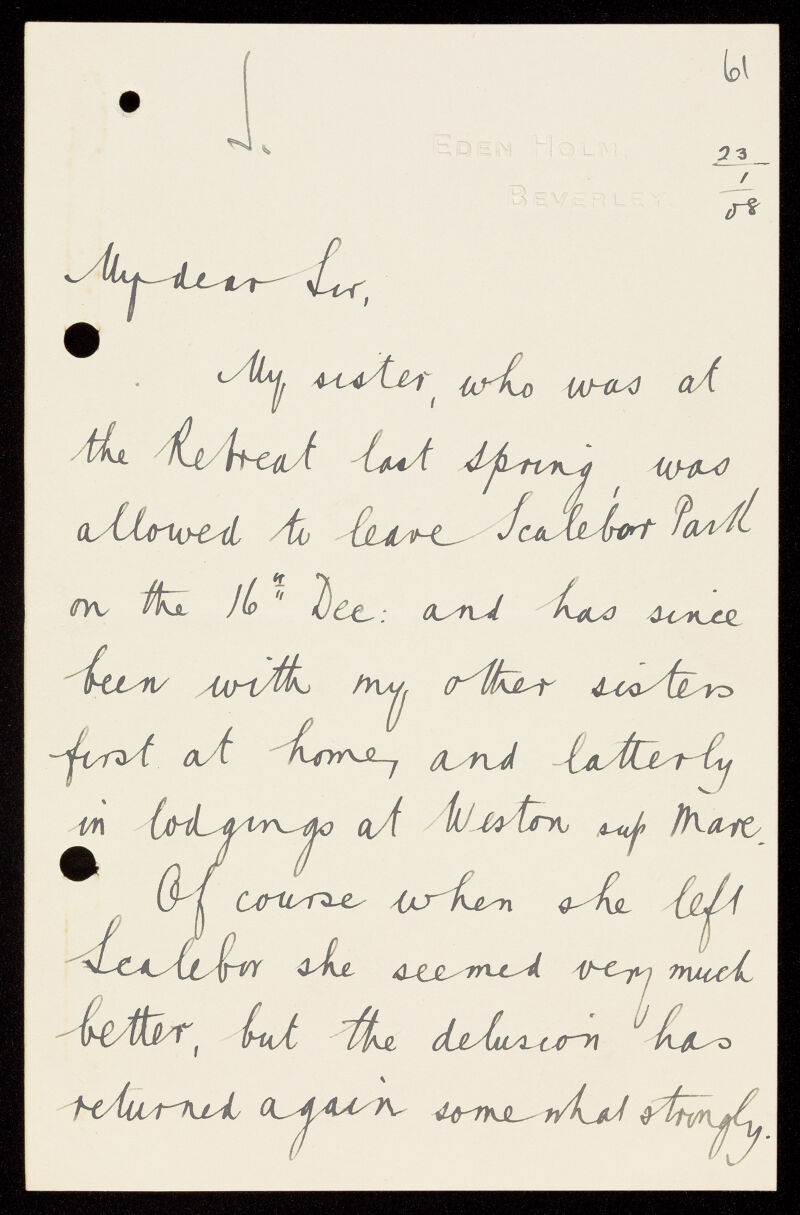 61
J.
EDEN HOLM,
BEVERLEY.
23
1
08
My dear Sir,
My sister, who was at
the Retreat last spring, was
allowed to leave Scalebor Park
on the 16th Dec: and has since
been with my other sisters
first at home, and latterly
in lodgings at Weston sup Mare.
Of course when she left
Scalebor she seemed very much
better, but the delusion has
returned again somewhat strongly.